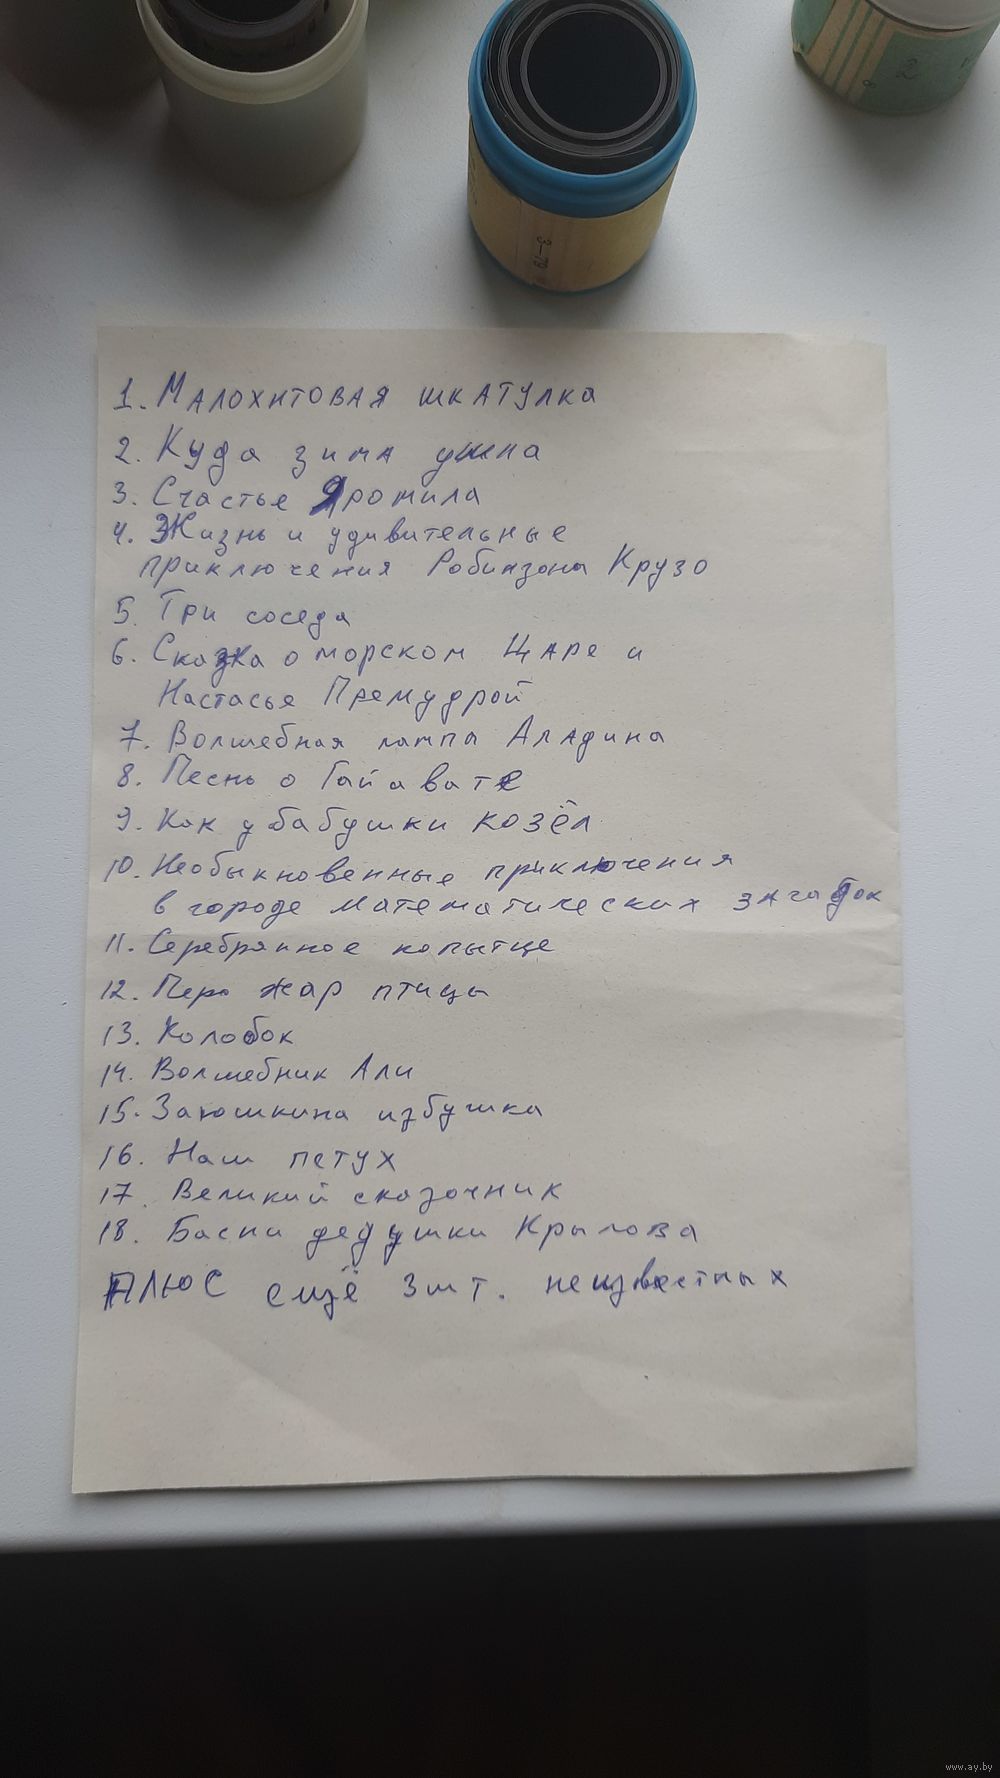 2
8
3-79
1. Малохитовая шкатулка
2. Куда зима ушла
3. Счастье Яромила
4. Жизнь и удивительные
приключения Робинзона Крузо
5. Три соседа
6. Сказка о морском Царе и
Настасье Премудрой
7. Волшебная лампа Аладина
8. Песнь о Гайавате
9. Как у бабушки козёл
10. Необыкновенные приключения
в городе математических загадок
11. Серебрянное копытце
12. Перо жар птицы
13. Колобок
14. Волшебник Али
15. Заюшкина избушка
16. Наш петух
17. Великий сказочник
18. Басни дедушки Крылова
Плюс ещё 3 шт. неизвестных
www.ay.by